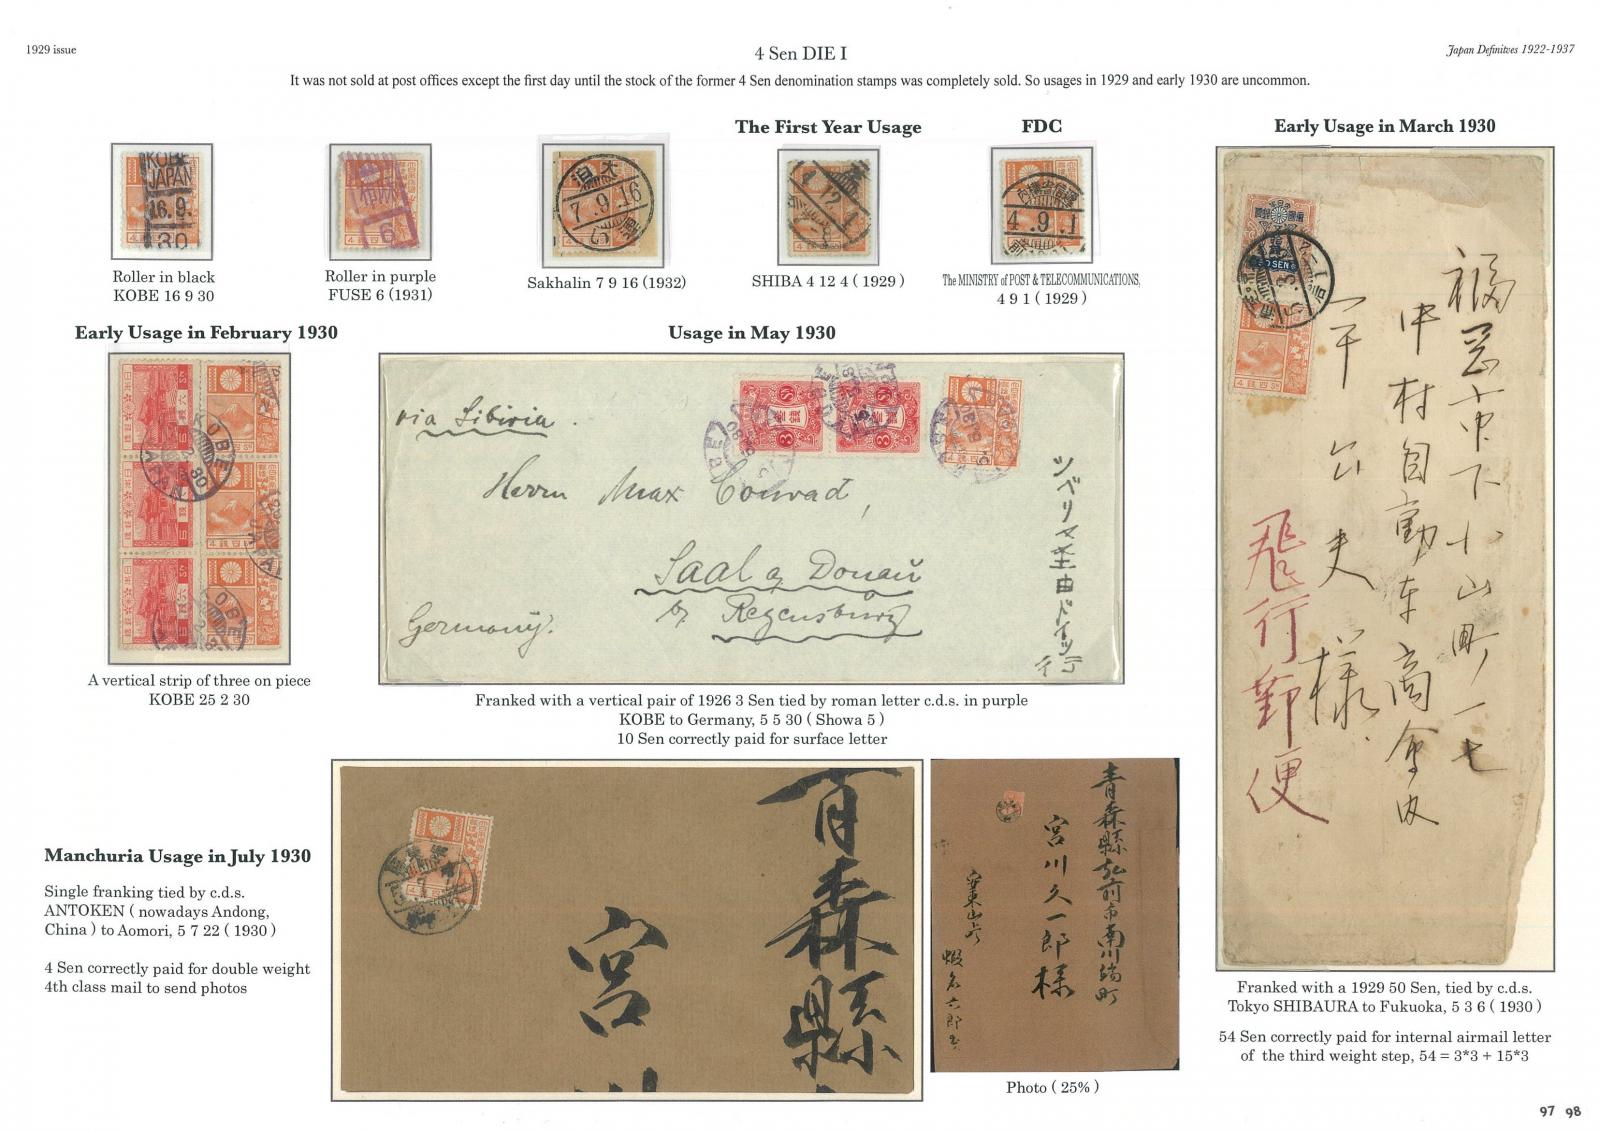 1929 issue
4 Sen DIE I
Japan Definitves 1922-1937
It was not sold at post offices except the first day until the stock of the former 4 Sen denomination stamps was completely sold. So usages in 1929 and early 1930 are uncommon.
The First Year Usage
FDC
Early Usage in March 1930
KOBE
JAPAN
16.9.
30
6
大泊
7.9.16
4.12.4
4.9.1
Roller in black
KOBE 16 9 30
Roller in purple
FUSE 6 (1931)
Sakhalin 7 9 16 (1932)
SHIBA 4 12 4 ( 1929 )
The MINISTRY of POST & TELECOMMUNICATIONS,
4 9 1 ( 1929 )
Early Usage in February 1930
Usage in May 1930
KOBE
JAPAN
via Sibiria.
Herrn Max Conrad,
Saal a Donau
by Regensburg
Germany.
シベリヤ経由ドイツ行
A vertical strip of three on piece
KOBE 25 2 30
Franked with a vertical pair of 1926 3 Sen tied by roman letter c.d.s. in purple
KOBE to Germany, 5 5 30 ( Showa 5 )
10 Sen correctly paid for surface letter
福岡市下小山町一七
中村自動車商会内
様
飛行郵便
Manchuria Usage in July 1930
Single franking tied by c.d.s.
ANTOKEN ( nowadays Andong,
China ) to Aomori, 5 7 22 ( 1930 )
4 Sen correctly paid for double weight
4th class mail to send photos
青森縣
宮川
青森縣弘前市南川端町
宮川久一郎様
Photo ( 25% )
Franked with a 1929 50 Sen, tied by c.d.s.
Tokyo SHIBAURA to Fukuoka, 5 3 6 ( 1930 )
54 Sen correctly paid for internal airmail letter
of the third weight step, 54 = 3*3 + 15*3
97 98